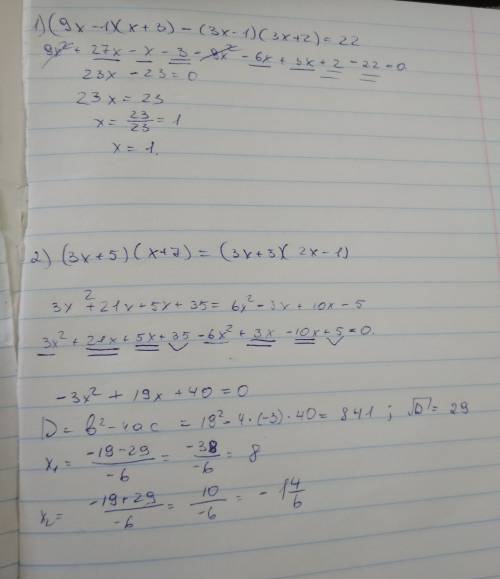 1) (9x-1)(x+3) - (3x-1)(3x+2) = 22
9x² + 27x - x - 3 - 9x² - 6x + 3x + 2 - 22 = 0
23x - 23 = 0
23x = 23
x = 23/23 = 1
x = 1.
2) (3x+5)(x+7) = (3x+3)(2x-1)
3x² + 21x + 5x + 35 = 6x² - 3x + 10x - 5
3x² + 21x + 5x + 35 - 6x² + 3x - 10x + 5 = 0.
-3x² + 19x + 40 = 0
D = b² - 4ac = 19² - 4·(-3)·40 = 841 ; √D = 29
x₁ = (-19-29)/-6 = -38/-6 = 8
x₂ = (-19+29)/-6 = 10/-6 = -1 4/6